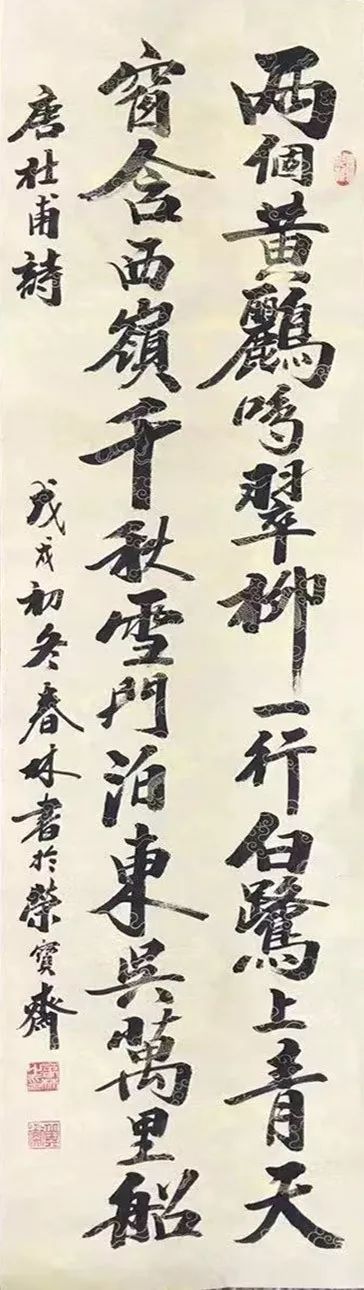 兩個黃鸝鳴翠柳一行白鷺上青天
窗含西嶺千秋雪門泊東吳萬里船
唐杜甫詩
戊戌初冬春林書於榮寶齋